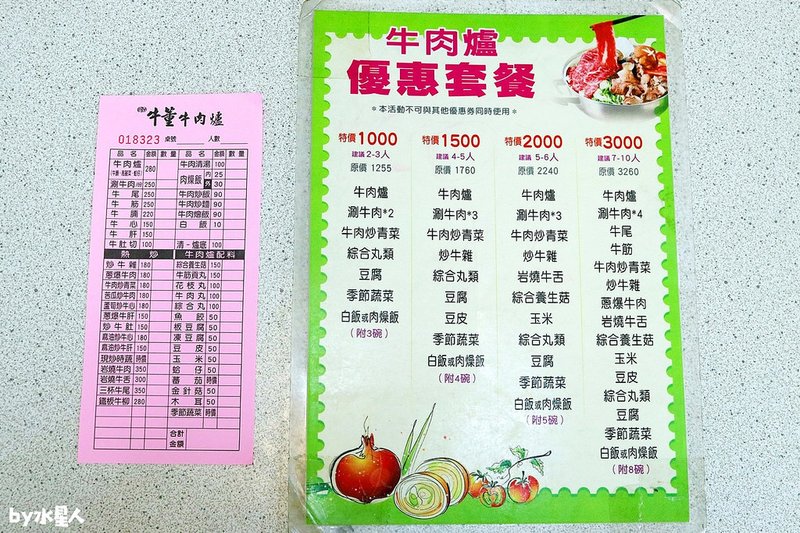 牛董牛肉爐
018323 桌號 人數
品名 金額 數量 品名 金額 數量
牛肉爐 280 牛肉清湯 100
肉燥飯 內 25
涮牛肉 250 外 30
牛尾 250 牛肉炒飯 90
牛筋 250 牛肉炒麵 90
牛腩 220 牛肉燴飯 90
牛心 150 白飯 10
牛肝 150
牛肚切 100 清-爐底 100
熱炒 牛肉爐配料
炒牛雜 180 綜合養生菇 150
蔥爆牛肉 180 牛筋貢丸 150
牛肉炒青菜 180 花枝丸 100
苦瓜炒牛肉 180 牛肉丸 100
蘆筍炒牛心 180 綜合丸 100
蔥爆牛肝 150 魚餃 50
炒牛肚 150 板豆腐 50
麻油炒牛心 180 凍豆腐 50
麻油炒牛肝 150 豆皮 50
現炒時蔬 時價 玉米 50
岩燒牛肉 350 蛤仔 50
岩燒牛舌 300 蕃茄 時價
三杯牛尾 350 金針菇 50
鐵板牛柳 200 木耳 50
季節蔬菜 時價
合計
金額
牛肉爐
優惠套餐
*本活動不可與其他優惠券同時使用*
特價1000
建議2-3人
原價 1255
牛肉爐
涮牛肉*2
牛肉炒青菜
綜合丸類
豆腐
季節蔬菜
白飯或肉燥飯
(附3碗)
特價1500
建議 4-5人
原價 1760
牛肉爐
涮牛肉*3
牛肉炒青菜
炒牛雜
綜合丸類
豆腐
豆皮
季節蔬菜
白飯或肉燥飯
(附4碗)
特價2000
建議 5-6人
原價 2240
牛肉爐
涮牛肉*3
牛肉炒青菜
炒牛雜
岩燒牛舌
綜合養生菇
玉米
綜合丸類
豆腐
季節蔬菜
白飯或肉燥飯
(附5碗)
特價3000
建議 7-10人
原價 3260
牛肉爐
涮牛肉*4
牛尾
牛筋
牛肉炒青菜
炒牛雜
蔥爆牛肉
岩燒牛舌
綜合養生菇
玉米
豆皮
綜合丸類
豆腐
季節蔬菜
白飯或肉燥飯
(附8碗)
by水星人